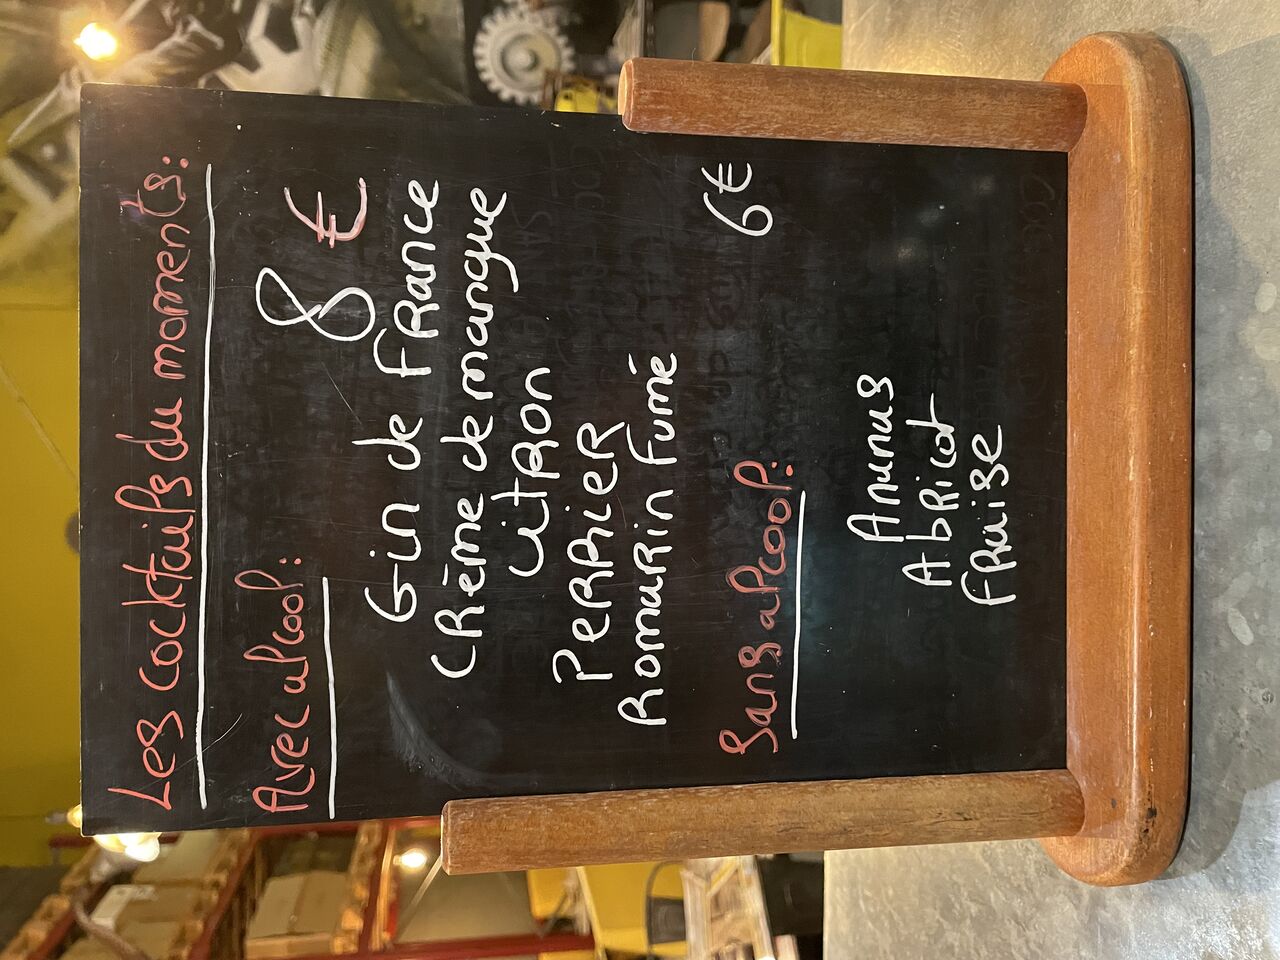 Les cocktails du moments:
Avec alcool: 8 €
Gin de France
Crème de mangue
Citron
Perrier
Romarin fumé
Sans alcool: 6€
Ananas
Abricot
Fraise